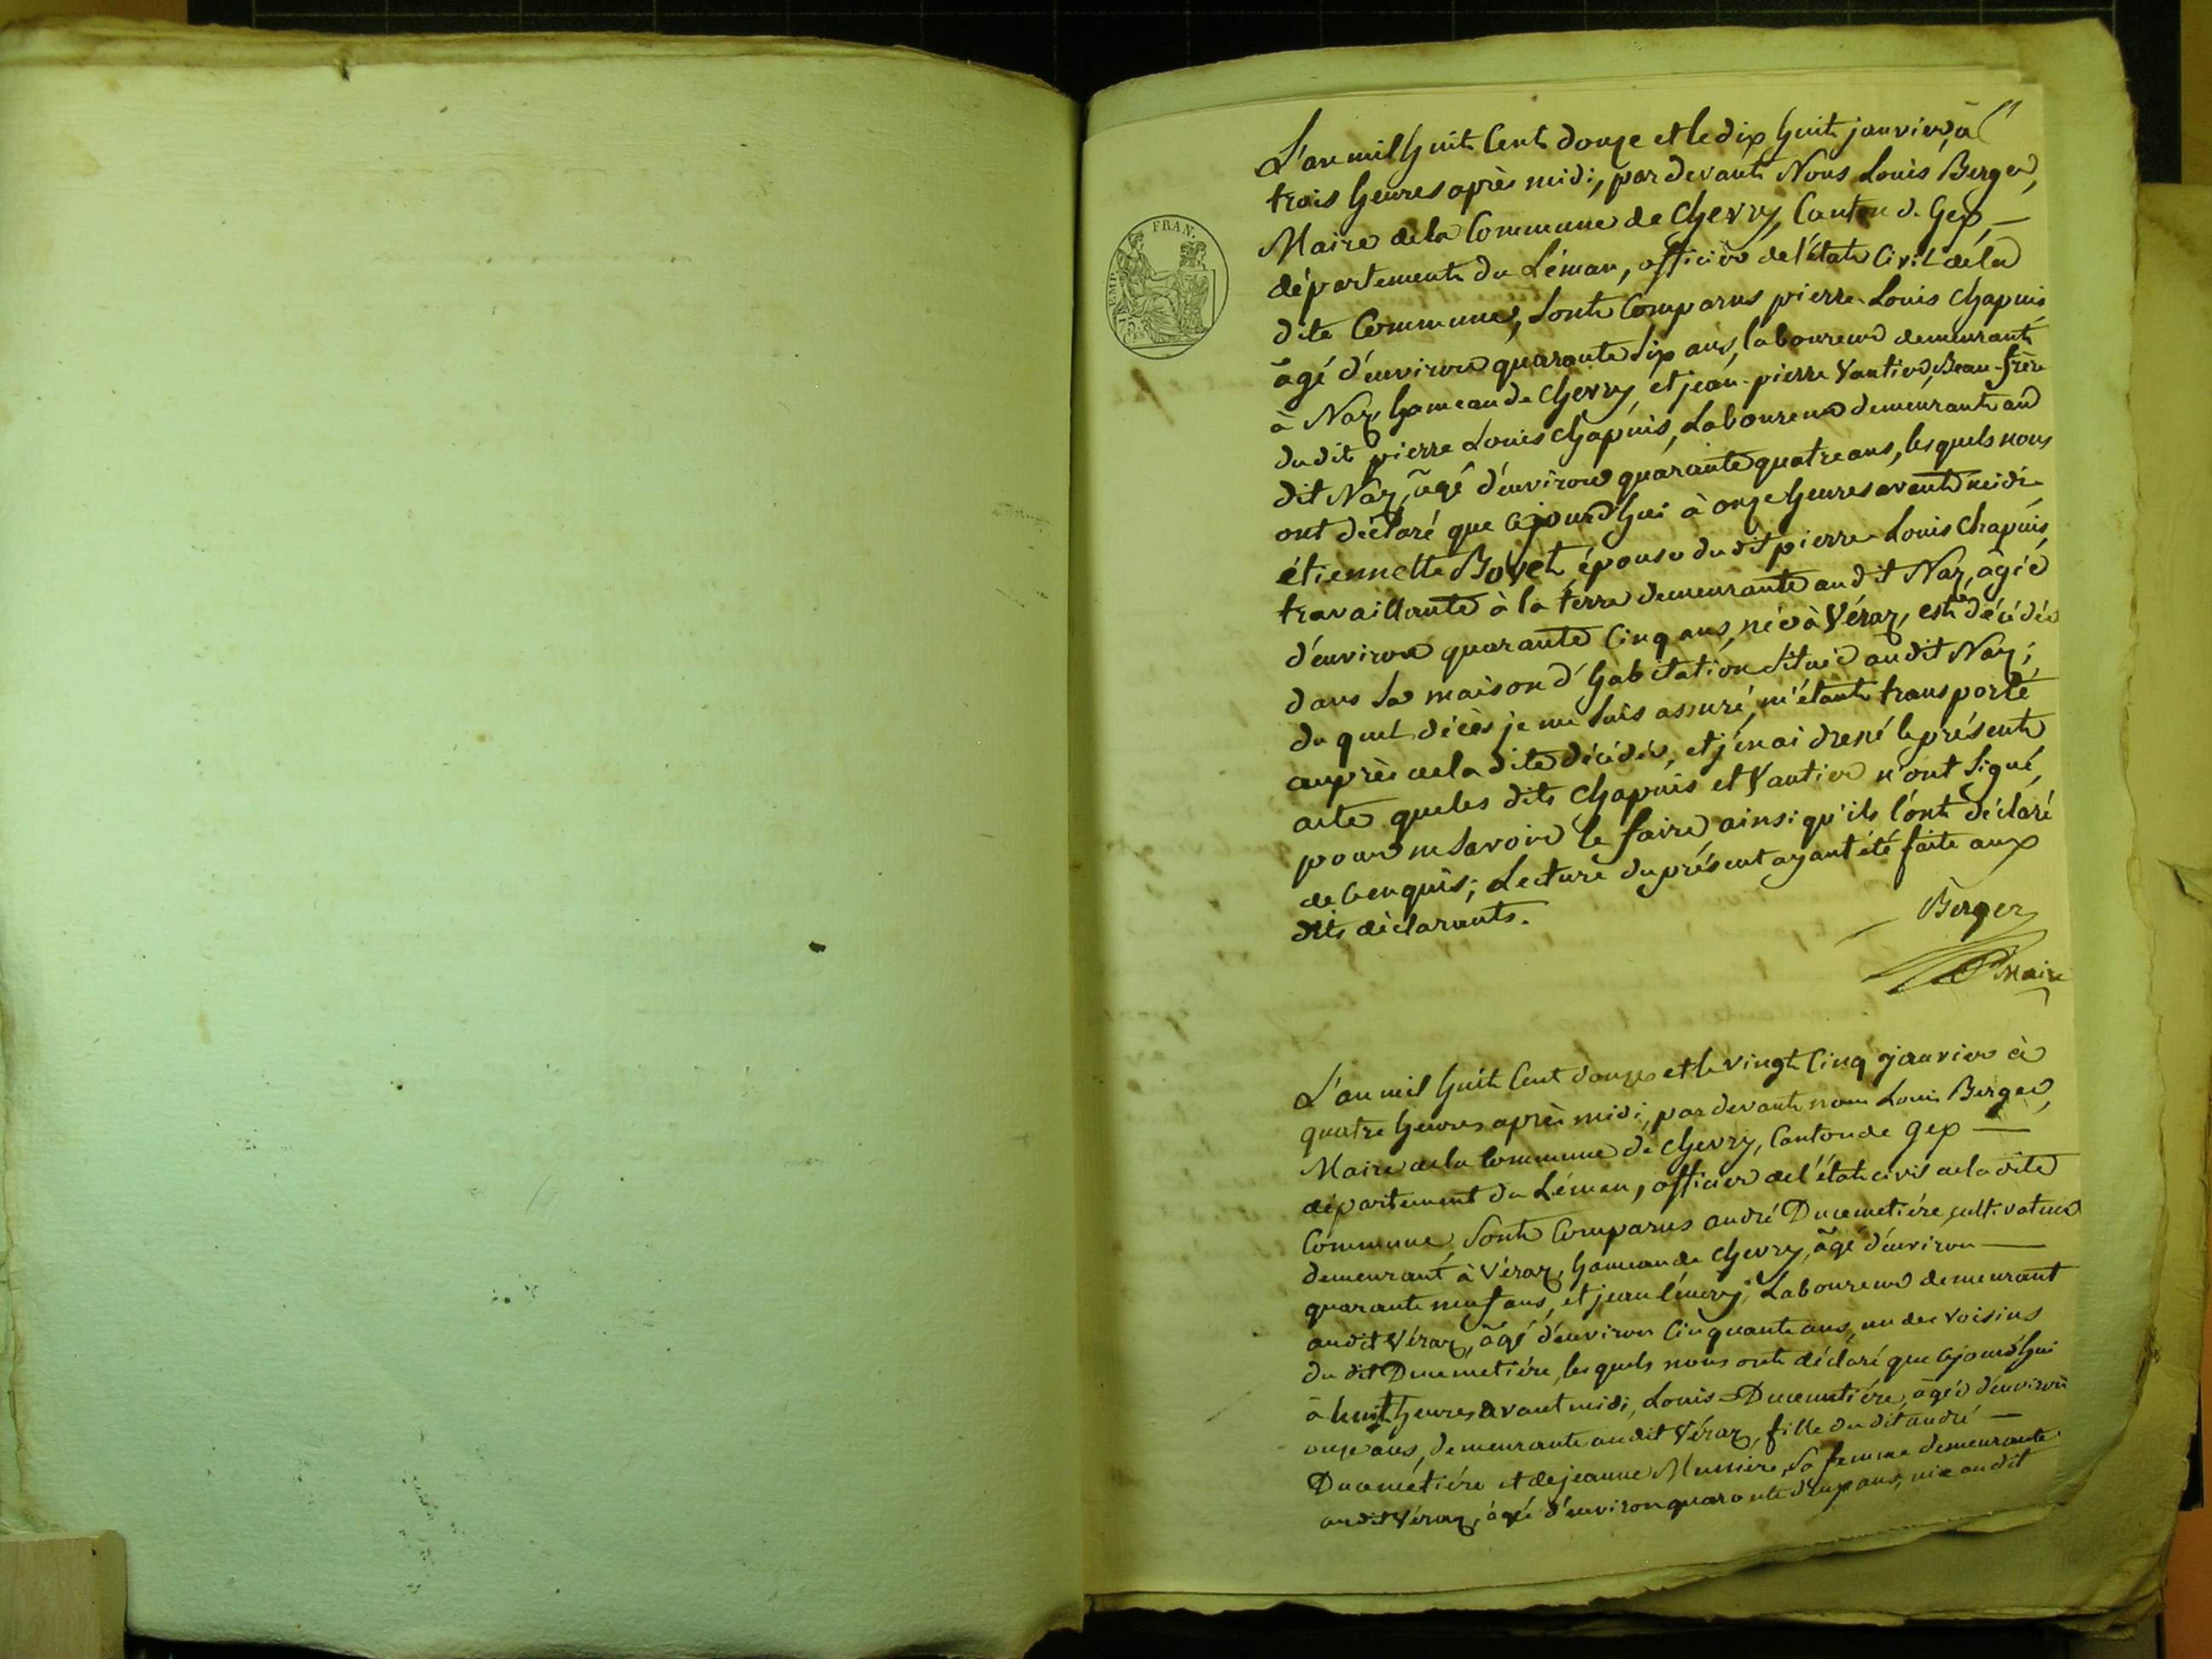 L'an mil huit Cent douze et le dix huit janvier, à
trois heures après midi, par devant Nous Louis Berger,
Maire de la Commune de Chevry, Canton de Gex,
EMP. FRAN.
département du Léman, officier de l'état Civil de la
dite Commune, sont Comparus pierre Louis Chapuis
75 CES
âgé d'environ quarante six ans, laboureur demeurant
à Naz hameau de Chevry, et jean-pierre Vautier, Beau-frère
du dit pierre Louis Chapuis, Laboureur demeurant au
dit Naz, âgé d'environ quarante quatre ans, lesquels nous
ont déclaré que cejourd'hui à onze heures avant midi
étiennette Bovet, épouse du dit pierre Louis Chapuis,
travaillante à la terre demeurante au dit Naz, âgée
d'environ quarante Cinq ans, née à Véraz, est décédée
dans sa maison d'habitation située au dit Naz;
du quel décès je me suis assuré, m'étant transporté
auprès de la dite décédée, et j'en ai dressé le présent
acte que les dits Chapuis et Vautier n'ont signé,
pour ne savoir le faire, ainsi qu'ils l'ont déclaré
de ce enquis; Lecture du présent ayant été faite aux
dits déclarants.
Berger
Maire
L'an mil huit Cent douze et le vingt Cinq janvier à
quatre heures après midi, par devant nous Louis Berger,
Maire de la Commune de Chevry, Canton de Gex
département du Léman, officier de l'état civil de la dite
Commune, sont Comparus andré Ducimetière, cultivateur
demeurant à Véraz, hameau de Chevry, âgé d'environ
quarante neuf ans, et jean Laboureur demeurant
au dit Véraz, âgé d'environ Cinquante ans, un des voisins
du dit Ducimetière, lesquels nous ont déclaré que cejourd'hui
à huit heures avant midi, Louis Ducimetière, âgée d'environ
onze ans, demeurante au dit Véraz, fille du dit andré
Ducimetière et de jeanne sa femme demeurante
au dit Véraz, âgée d'environ quarante deux ans, née au dit